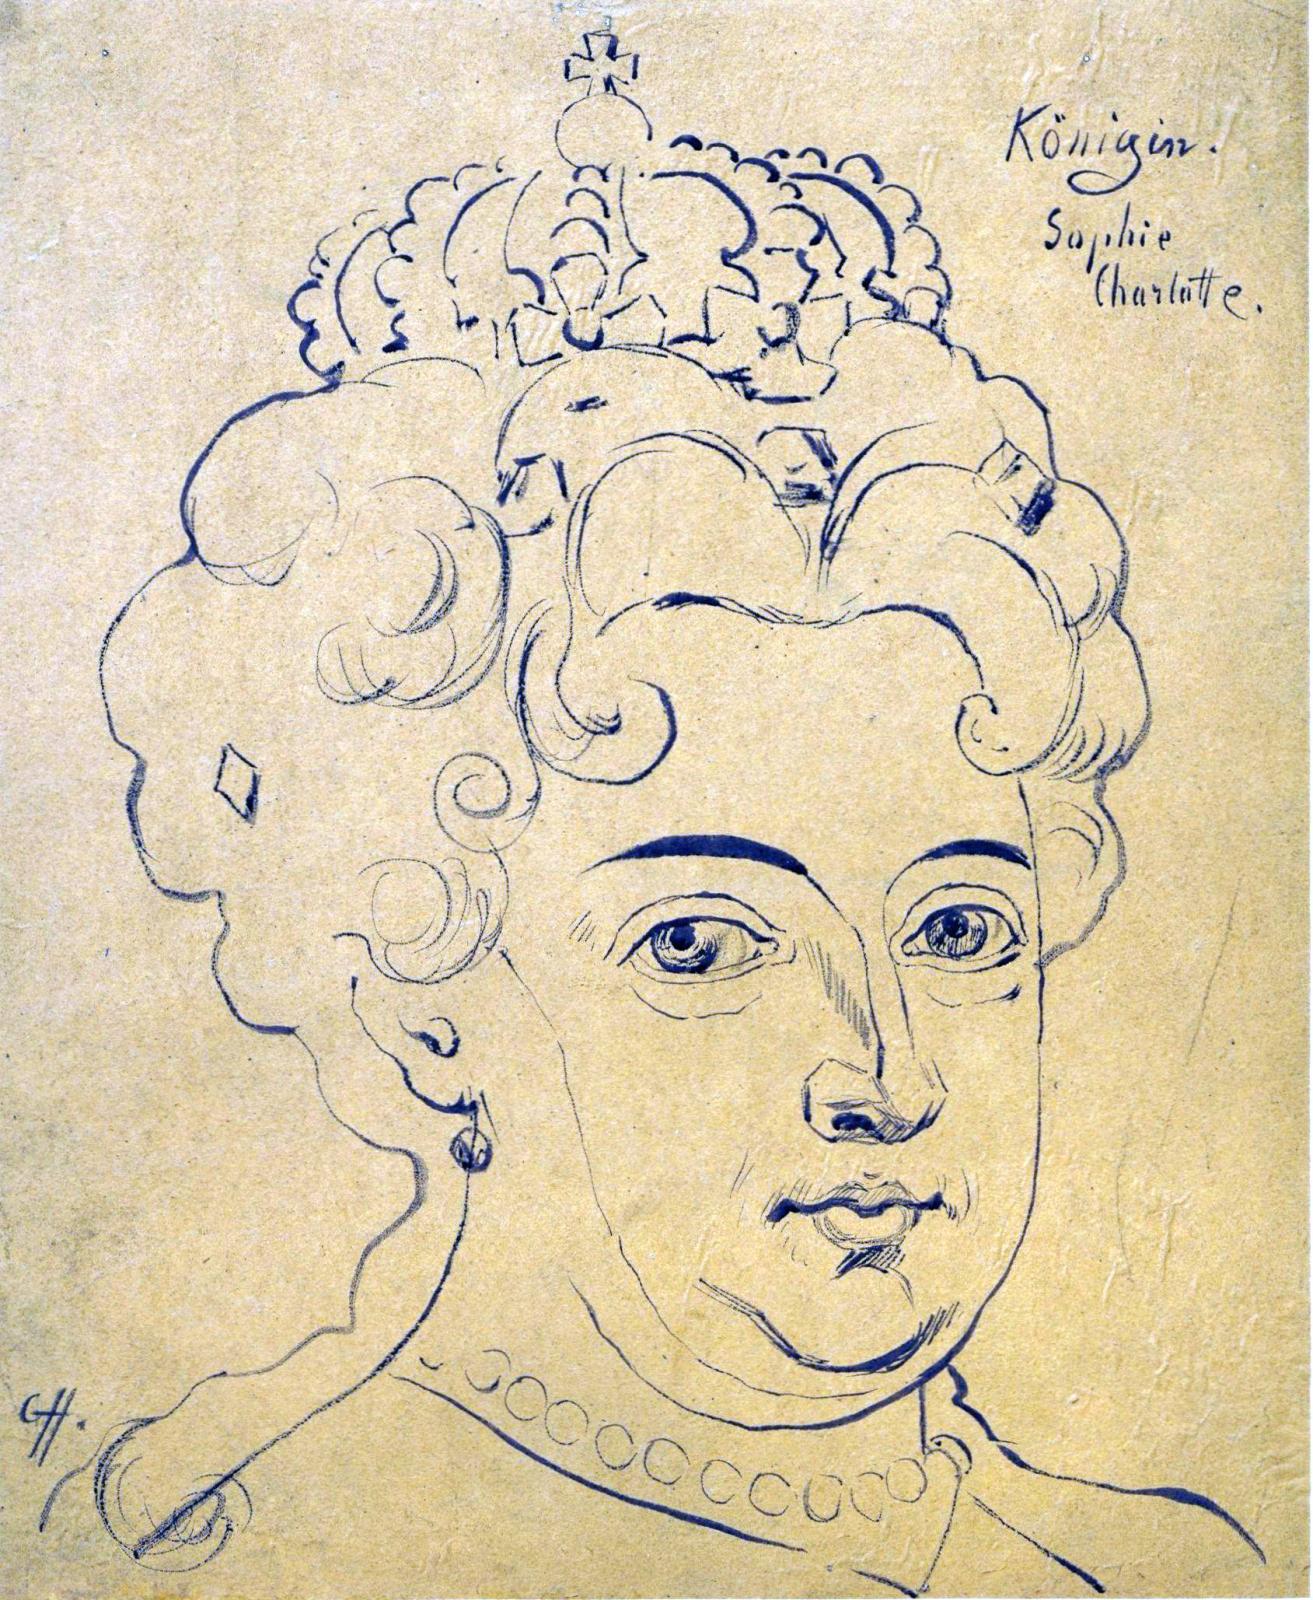 Königin.
Sophie
Charlotte.
GH.